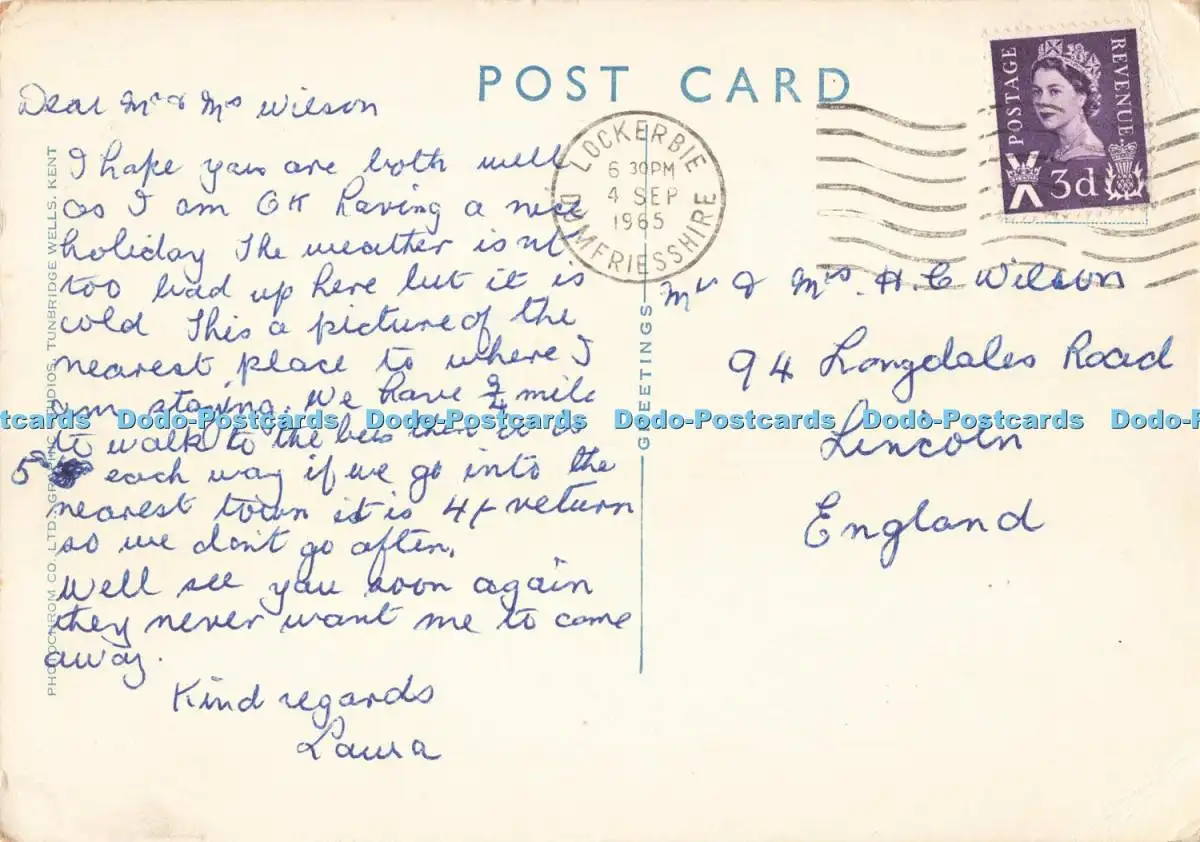 POST CARD
Dear Mr & Mrs Wilson
I hope you are both well
as I am OK having a nice
holiday The weather isnt
too bad up here but it is
cold This a picture of the
nearest place to where I
am staying. We have 3/4 mile
to walk to the bus then it is
5 each way if we go into the
nearest town it is 4/- return
so we dont go often.
Well see you soon again
they never want me to come
away.
Kind regards
Laura
PHOTOCHROM CO. LTD., GRAPHIC STUDIOS, TUNBRIDGE WELLS, KENT
GREETINGS
LOCKERBIE
6 30PM
4 SEP
1965
DUMFRIESSHIRE
POSTAGE
REVENUE
3d
Mr & Mrs. H. C Wilson
94 Longdales Road
Lincoln
England
Dodo-Postcards Dodo-Postcards Dodo-Postcards Dodo-Postcards Dodo-Postcards